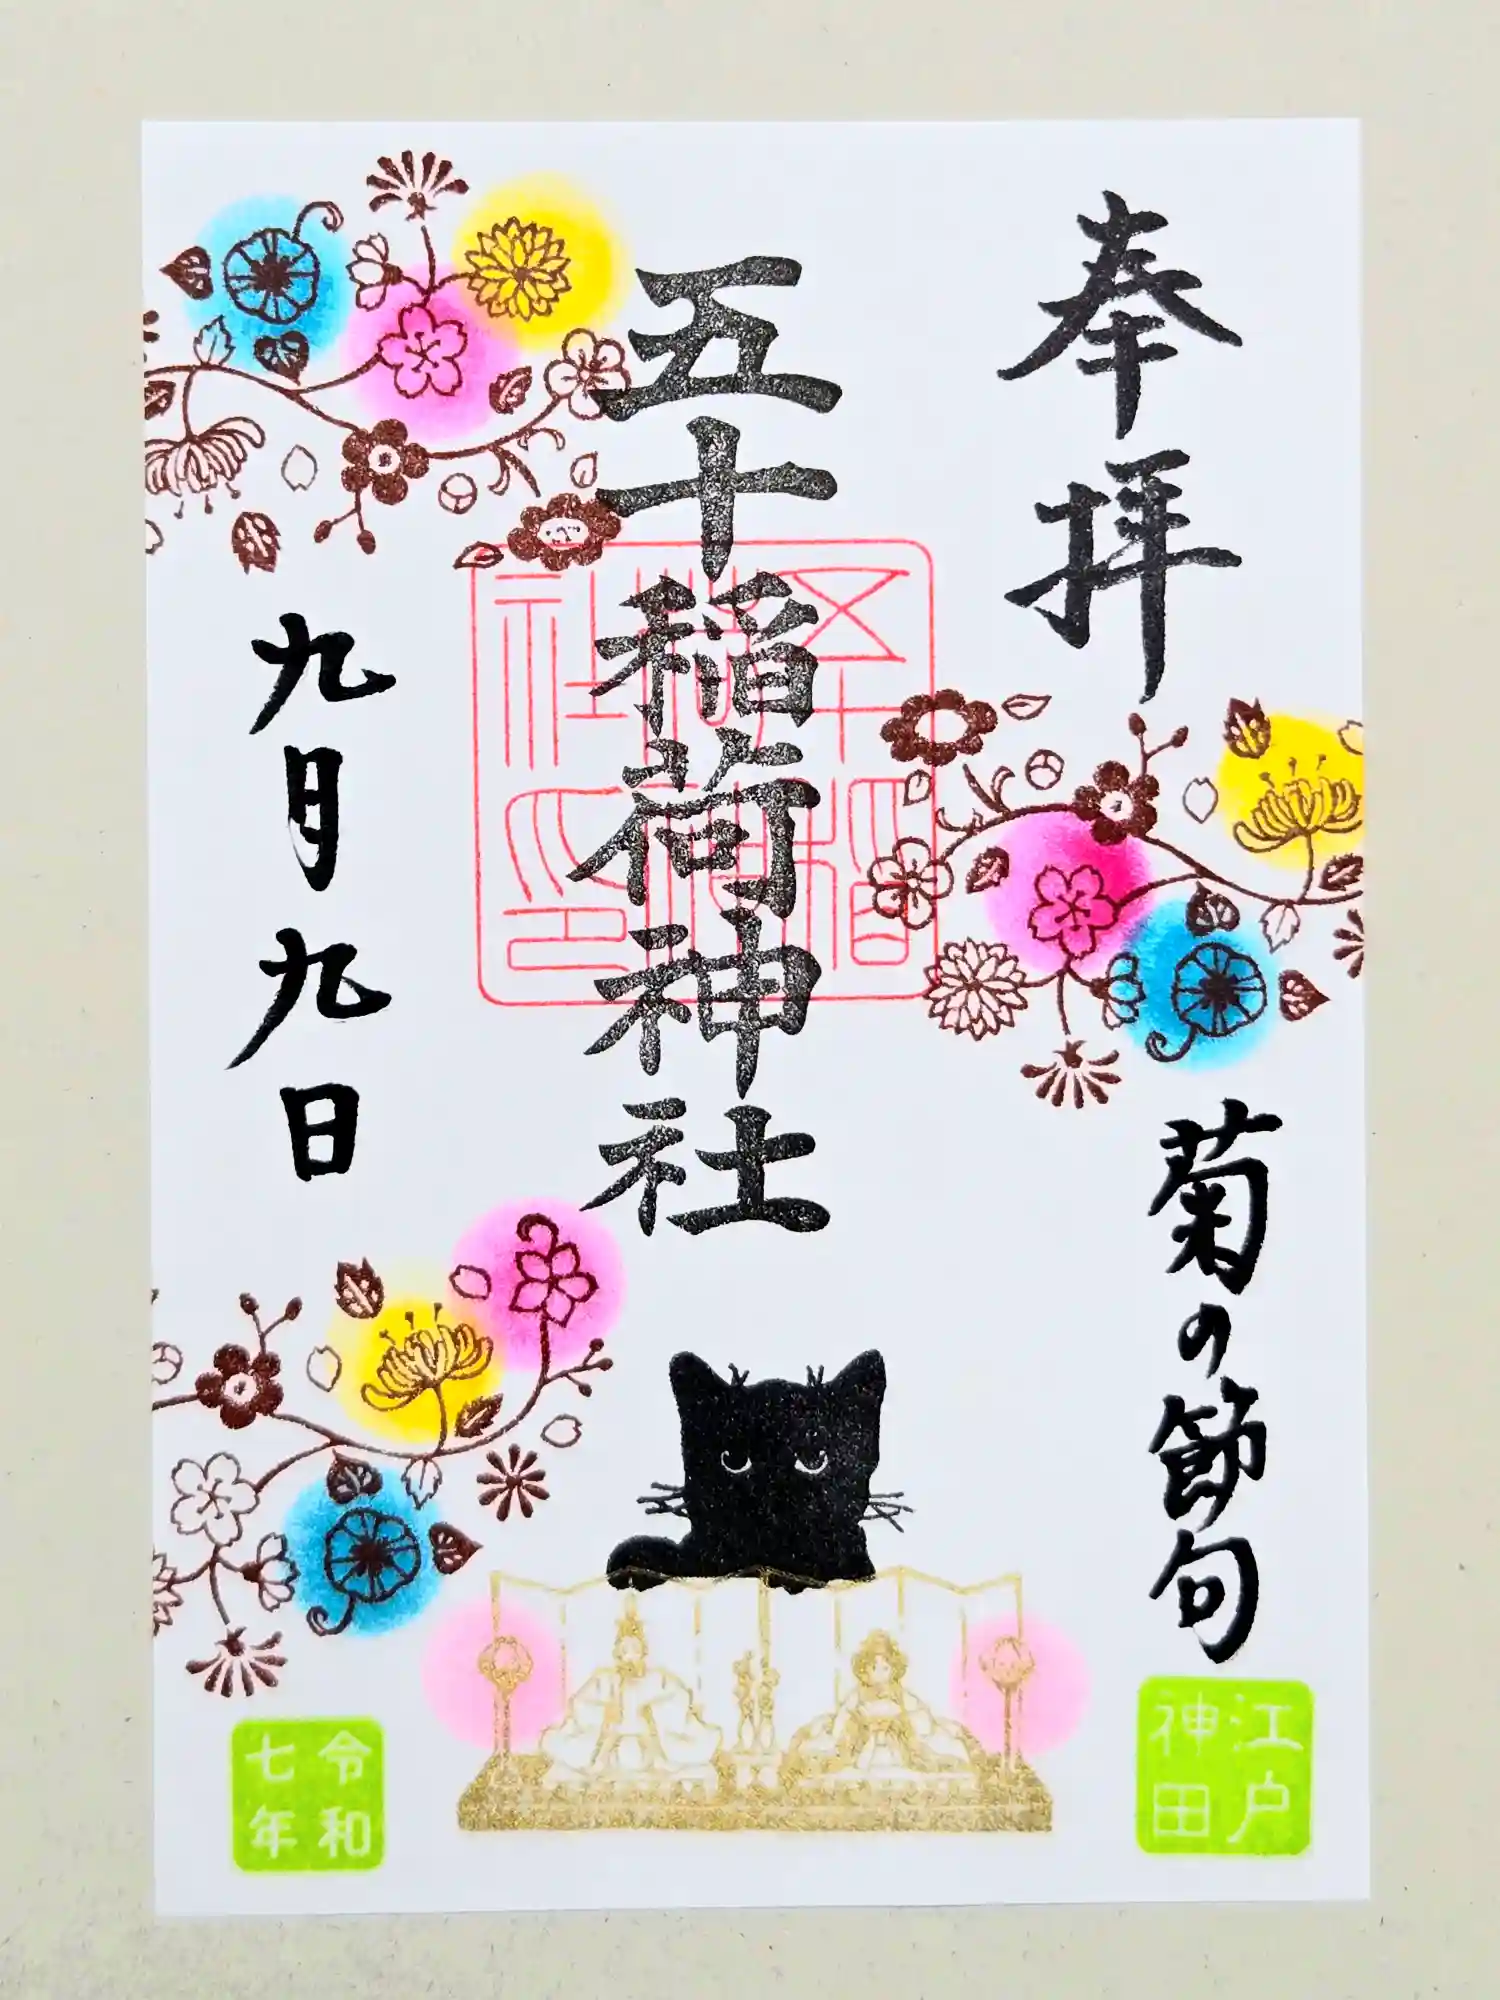 奉拝
菊の節句
江戸
神田
五十稲荷神社
五十稲
荷神
社印
九月九日
令和
七年